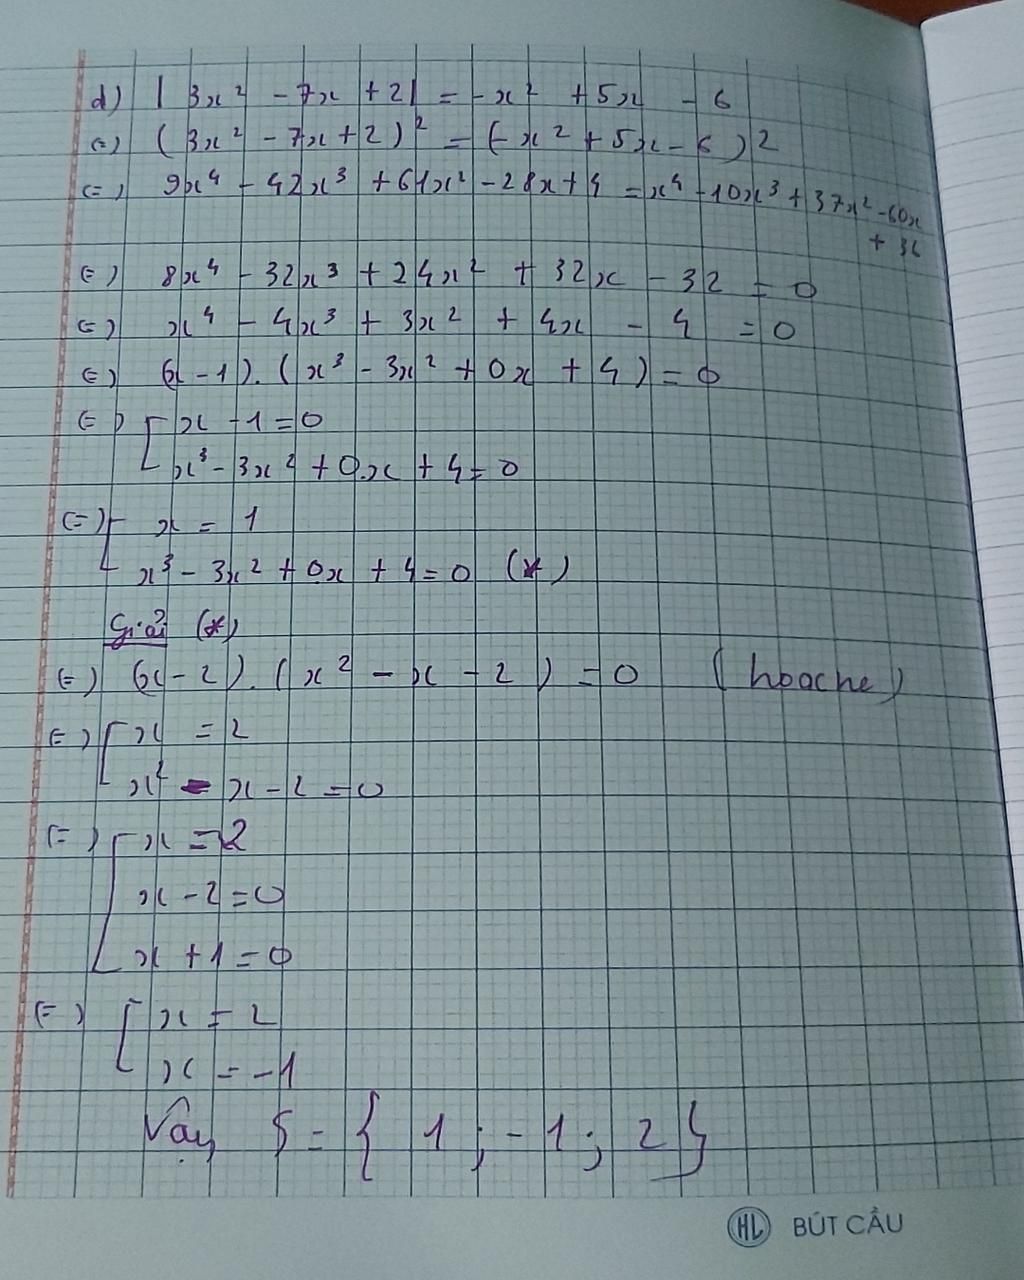 d) | 3x² - 7x + 2| = -x² + 5x - 6
(=) (3x² - 7x + 2)² = (-x² + 5x - 6)2
(=) 9x⁴ - 42x³ + 61x² - 28x + 4 = x⁴ - 10x³ + 37x² - 60x
+ 36
(=) 8x⁴ - 32x³ + 24x² + 32x - 32 = 0
(=) x⁴ - 4x³ + 3x² + 4x - 4 = 0
(=) (x - 1).(x³ - 3x² + 0x + 4) = 0
(=) [ x - 1 = 0
x³ - 3x² + 0.x + 4 = 0
(=) [ x = 1
x³ - 3x² + 0x + 4 = 0 (*)
Giải (*)
(=) (x - 2).(x² - x - 2) = 0 (hoocne)
(=) [ x = 2
x² - x - 2 = 0
(=) [ x = 2
x - 2 = 0
x + 1 = 0
(=) [ x = 2
x = -1
Vậy S = { 1 ; -1 ; 2 }
HL BÚT CẦU